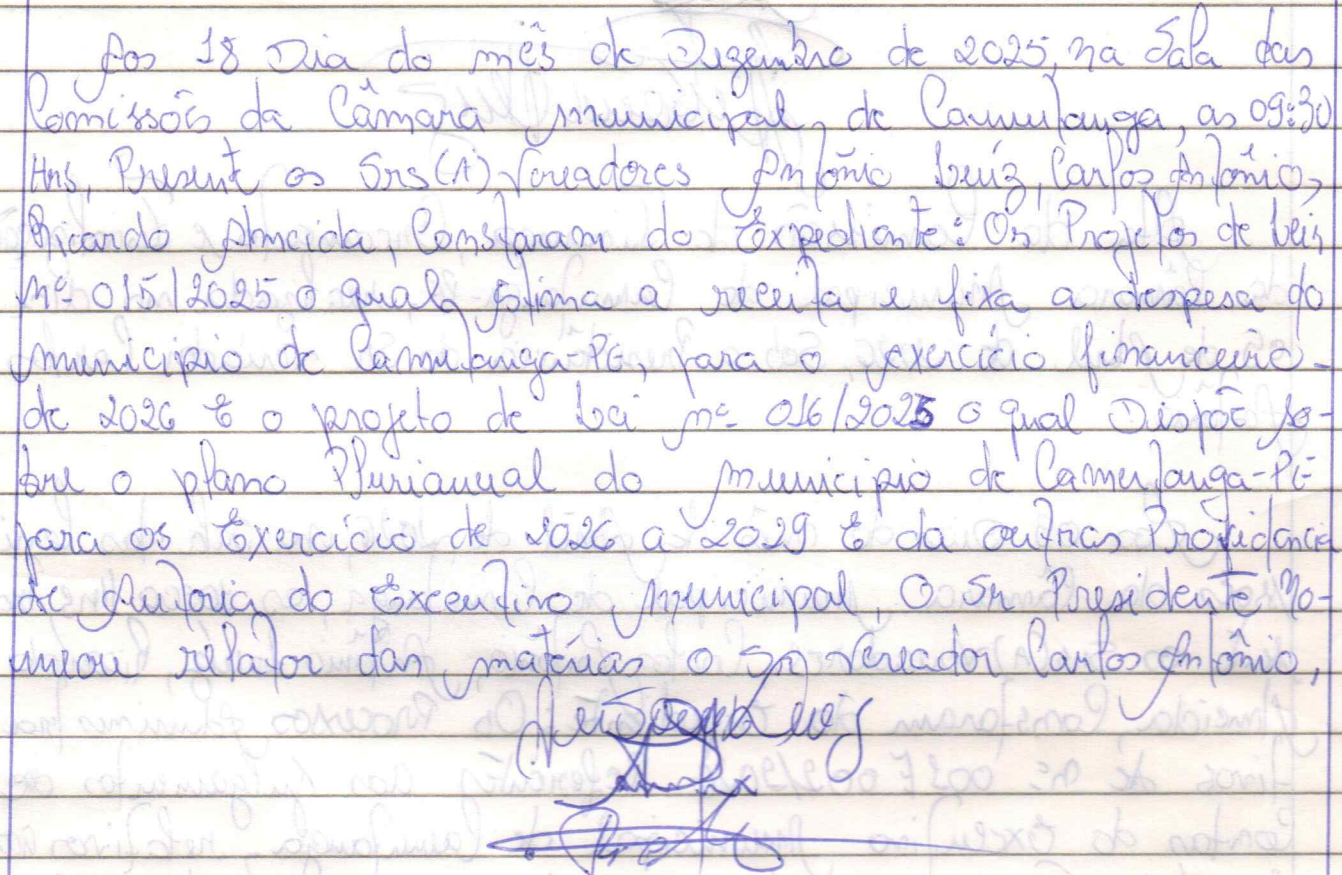 Aos 18 Dia do mês de Dezembro de 2025, na Sala das
Comissões da Câmara municipal, de Camutanga, as 09:30
Hrs, Present os Srs(A) Vereadores Antônio Luiz, Carlos Antônio,
Ricardo Almeida, Constaram do Expediente: Os Projetos de Leis
nº 015/2025 o qual Estima a receita e fixa a despesa do
municipio de Camutanga-PE, para o exercício financeiro
de 2026 E o projeto de Lei nº 016/2025 o qual Dispõe so-
bre o plano Plurianual do municipio de Camutanga-PE
para os Exercício de 2026 a 2029 E da outras Providência
de Autoria do Executivo municipal, O Sr Presidente No-
meou relator das matérias o Sr Vereador Carlos Antônio,